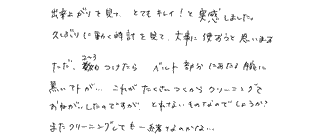 出来上がりを見て、とてもキレイ！と実感しました。
久しぶりに動く時計を見て、大事に使おうと思います
ただ、2〜3 つけたら ベルト部分にあたる腕に
黒いアトが… これがたくさんつくからクリーニングで
お願いしたのですが、とれないものなのでしょうか？
またクリーニングしても一緒なのかな…